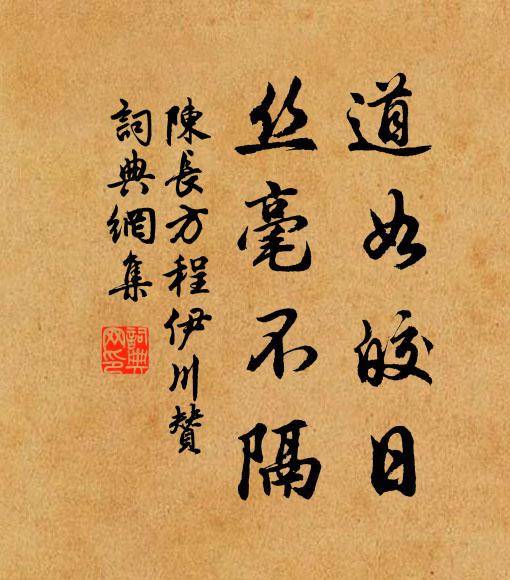 道如皎日
丝毫不隔
陳長方程伊川贊
詞典網集
詞典网印